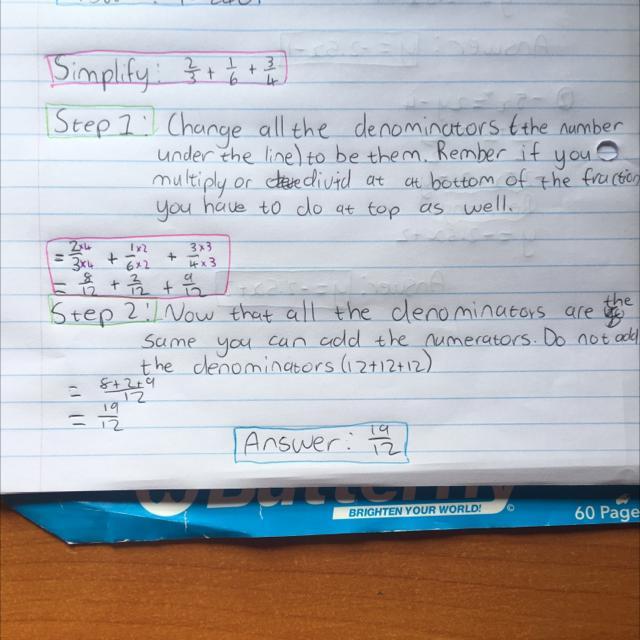 Simplify: 2/3 + 1/6 + 3/4
Step 1: Change all the denominators (the number
under the line) to be them. Rember if you
multiply or divid at at bottom of the fraction
you have to do at top as well.
= 2×4/3×4 + 1×2/6×2 + 3×3/4×3
= 8/12 + 2/12 + 9/12
Step 2: Now that all the denominators are the
same you can add the numerators. Do not add
the denominators (12+12+12)
= 8+2+9/12
= 19/12
Answer: 19/12
Butterfly
BRIGHTEN YOUR WORLD!
60 Page